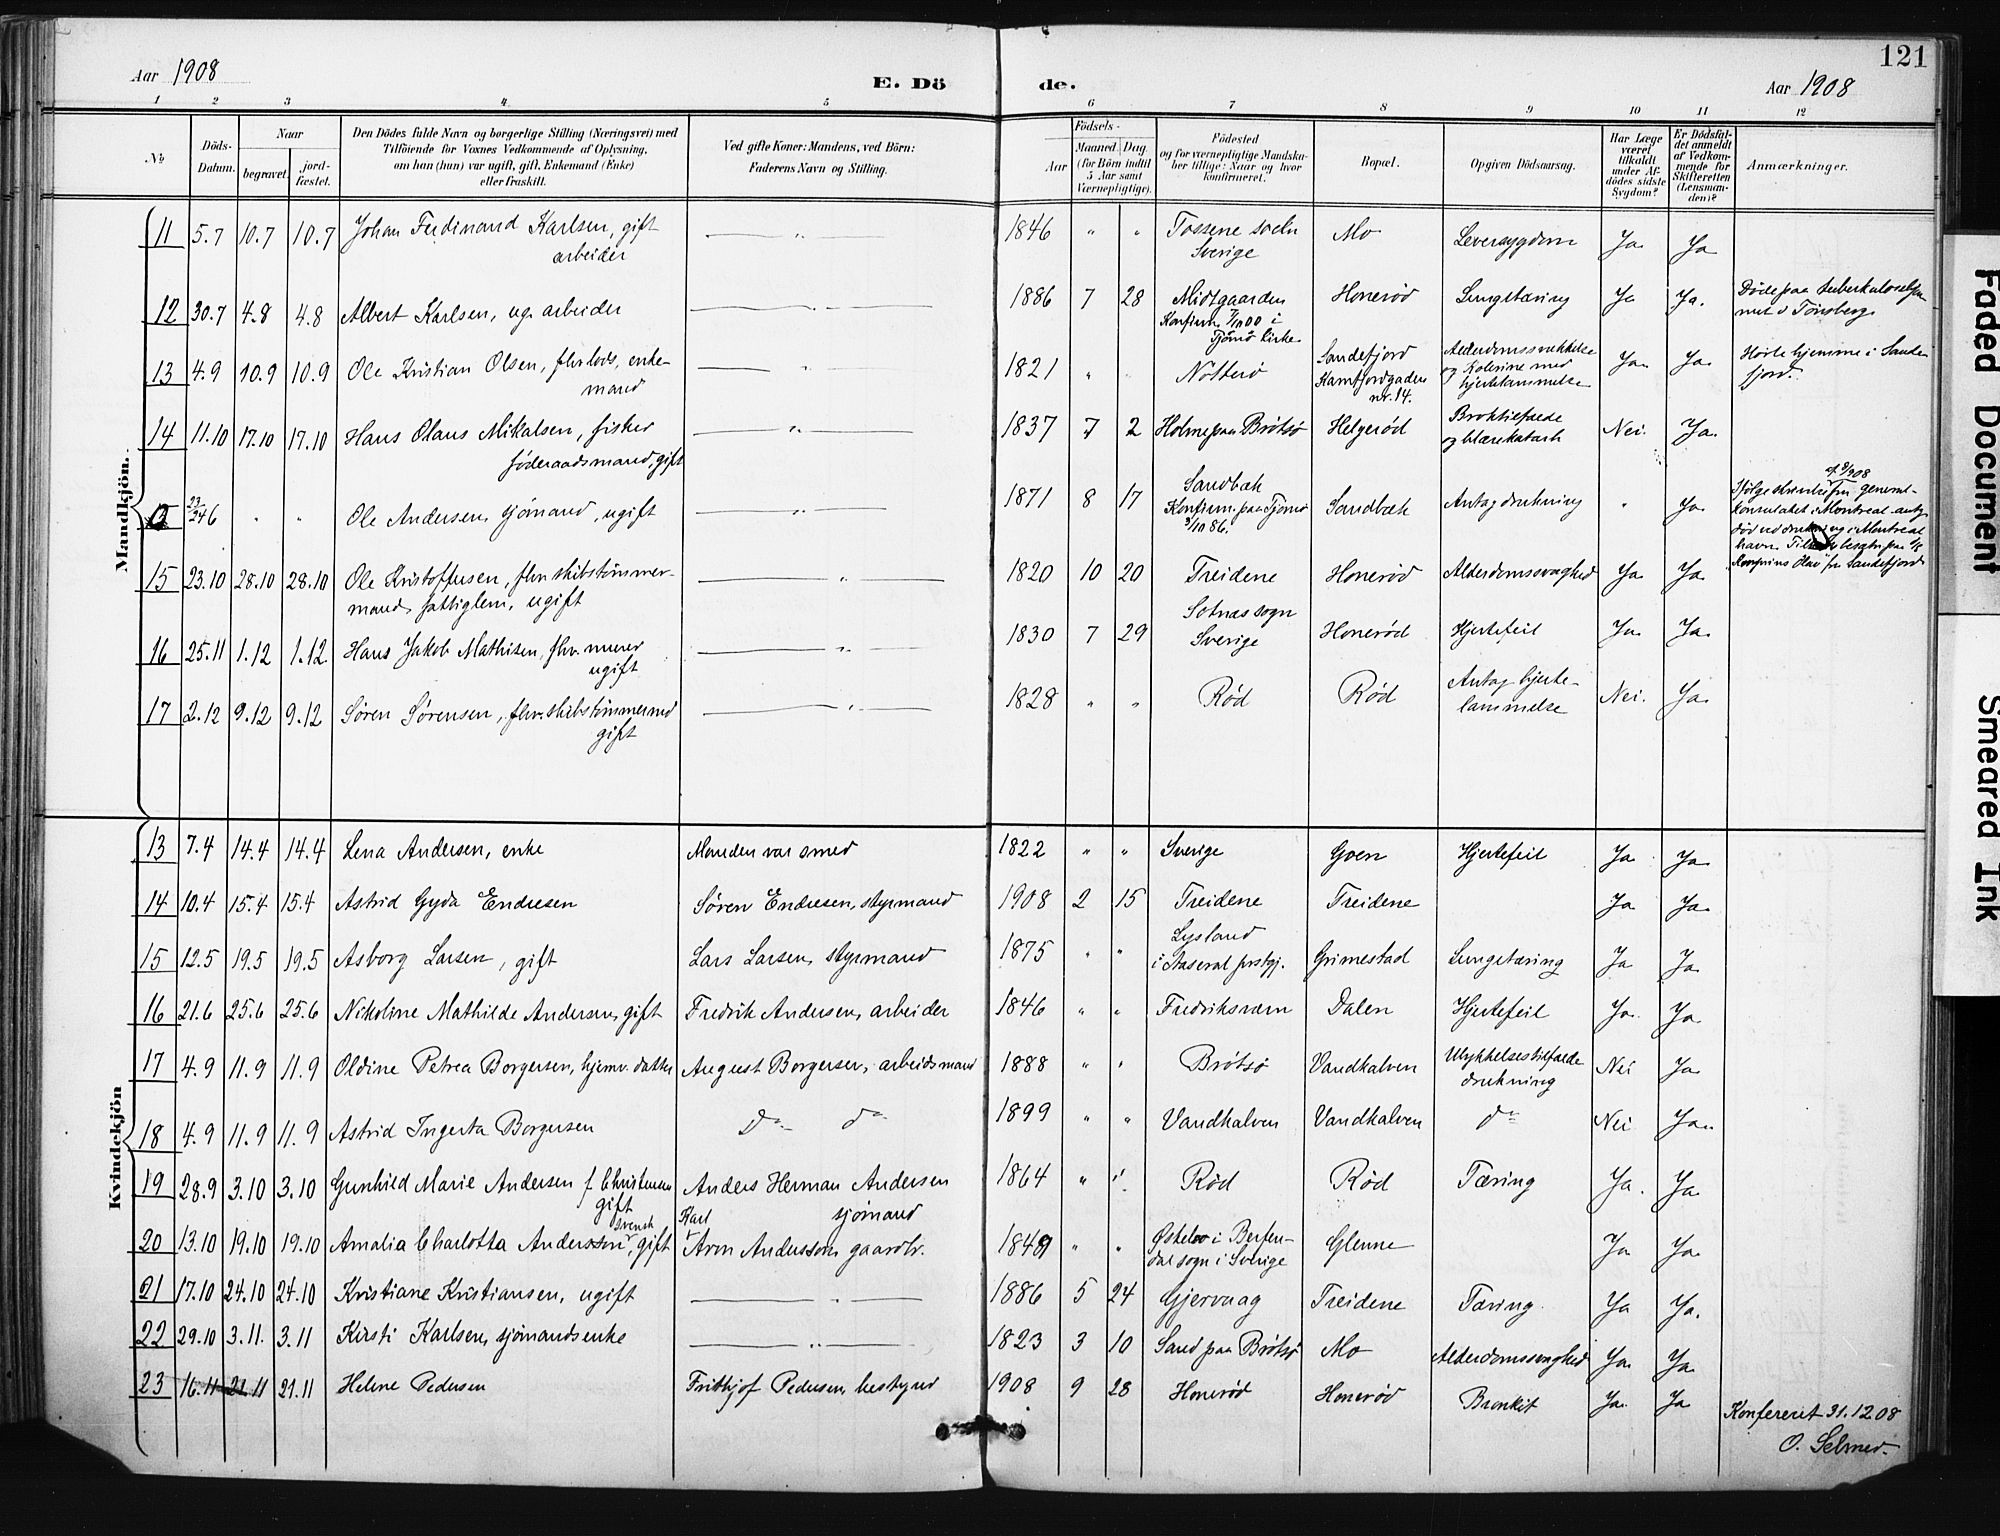 121
Aar 1908
E. Dö
de.
Aar 1908
1 2 3 4 5 6 7 8 9 10 11 12
№
Döds-Datum.
Naar
begravet.
jord-fæstet.
Den Dödes fulde Navn og borgerlige Stilling (Næringsvei) med
Tilföiende for Voxnes Vedkommende af Oplysning,
om han (hun) var ugift, gift, Enkemand (Enke)
eller fraskilt.
Ved gifte Koner: Mandens, ved Börn:
Faderens Navn og Stilling.
Födsels-
Aar
Maaned. Dag.
(for Börn indtil
5 Aar samt
Værnepligtige).
Födested
og for værnepligtige Mandska-
ber tillige: Naar og hvor
konfirmeret.
Bopæl.
Opgiven Dödsaarsag.
Har Læge
været
tilkaldt
under Af-
dödes sidste
Sygdom?
Er Dödsfal-
det anmeldt
af Vedkom-
mende for
Skifteretten
(Lensman-
den)?
Anmærkninger.
Mandkjön.
11 5.7 10.7 10.7 Johan Ferdinand Karlsen, gift arbeider — " — 1846 " " Tossene socln Sverige Mo Leversygdom Ja Ja
12 30.7 4.8 4.8 Albert Karlsen, ug. arbeider — " — 1886 7 28 Midtgaarden Konfirm. 7/10 00 i Tjömö kirke Honerød Lungetæring Ja Ja. Døde paa i Tönsberg
13 4.9 10.9 10.9 Ole Kristian Olsen, fhv. lods, enkemand — " — 1821 " " Nötterö Sandefjord Kamfjordgaden nr. 14. Alderdomssvækkelse og Kolerine med hjertelammelse Ja Ja Hørte hjemme i Sandefjord.
14 11.10 17.10 17.10 Hans Olaus Mikalsen, fisker föderaadsmand, gift — " — 1837 7 2 Holme paa Brøtsø Helgerød Broktilfælde og blærekatarh Nei. Ja.
23/24 6 " " Ole Andersen, sjømand, ugift — " — 1871 8 17 Sandbæk Konfirm. paa Tjømø 3/10 86. Sandbæk Antag. drukning " Ja Ifølge skrivelse af 8/908 fra generalkonsulatet i Montreal antag. død ved drukning i Montreal havn. besætn. paa Kronprins Olav fra Sandefjord
15 23.10 28.10 28.10 Ole Kristoffersen, fhv. skibstömmermand, fattiglem, ugift — " — 1820 10 20 Treidene Honerød Alderdomssvaghed Ja Ja
16 25.11 1.12 1.12 Hans Jakob Mathisen, fhv. murer ugift — " — 1830 7 29 Sotnäs sogn Sverige Honerød Hjertefeil Ja Ja.
17 2.12 9.12 9.12 Søren Sørensen, fhv. skibstømmermd gift — " — 1828 " " Rød Rød Antag hjertelammelse Nei. Ja
Kvindekjön
13 7.4 14.4 14.4 Lena Andersen, enke Manden var smed 1822 " " Sverige Goen Hjertefeil Ja Ja
14 10.4 15.4 15.4 Astrid Gyda Endresen Søren Endresen, styrmand 1908 2 15 Treidene Treidene Ja Ja
15 12.5 19.5 19.5 Asborg Larsen, gift Lars Larsen, styrmand 1875 " " Lysland i Aaseral prstgj. Grimestad Lungetæring Ja Ja
16 21.6 25.6 25.6 Nikoline Mathilde Andersen, gift Fredrik Andersen, arbeider 1846 " " Fredriksværn Dalen Hjertefeil Ja. Ja
17 4.9 11.9 11.9 Oldine Petrea Borgersen, hjemv. datter August Borgersen, arbeidsmand 1888 " " Brötsø Vandkalven Ulykkelsestilfælde drukning Nei Ja
18 4.9 11.9 11.9 Astrid Ingerta Borgersen Do do 1899 " " Vandkalven Vandkalven do Nei Ja
19 28.9 3.10 3.10 Gunhild Marie Andersen f. Christensen gift Anders Herman Andersen sjömand 1864 " " Rød Rød Tæring Ja. Ja
20 13.10 19.10 19.10 Amalia Charlotta Andersson, svensk gift Karl Aron Andersson, gaardbr. 1849 " " i Berfendal sogn i Sverige Glenne Ja Ja
21 17.10 24.10 24.10 Kristiane Kristiansen, ugift — " — 1886 5 24 Gjervaag Treidene Tæring Ja Ja.
22 29.10 3.11. 3.11 Kirsti Karlsen, sjömandsenke — " — 1823 3 10 Sand paa Brötsø Mo Alderdomssvaghed Ja Ja
23 16.11 21.11 21.11 Helene Pedersen Frithjof Pedersen, bestyrer 1908 9 28 Honerød Honerød Bronkit Ja Ja
Konfereret 31.12.08
O. Selmer.
Faded Document
Smeared Ink